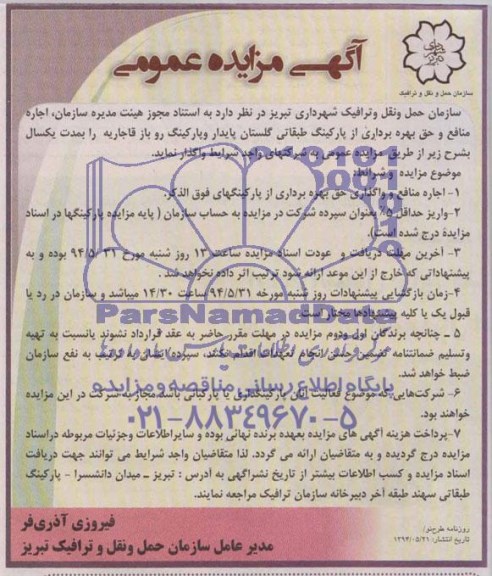 آگهی مزایده عمومی
سازمان حمل و نقل و ترافیک
سازمان حمل ونقل وترافیک شهرداری تبریز در نظر دارد به استناد مجوز هیئت مدیره سازمان، اجاره
منافع و حق بهره برداری از پارکینگ طبقاتی گلستان پایدار وپارکینگ رو باز قاجاریه را بمدت یکسال
بشرح زیر از طریق مزایده عمومی به شرکتهای واجد شرایط واگذار نماید.
موضوع مزایده و شرائط:
۱- اجاره منافع و واگذاری حق بهره برداری از پارکینگهای فوق الذکر.
۲-واریز حداقل ۵٪ بعنوان سپرده شرکت در مزایده به حساب سازمان ( پایه مزایده پارکینگها در اسناد
مزایده درج شده است).
۳- آخرین مهلت دریافت و عودت اسناد مزایده ساعت ۱۳ روز شنبه مورخ ۹۴/۵/۳۱ بوده و به
پیشنهاداتی که خارج از این موعد ارائه شود ترتیب اثر داده نخواهد شد .
۴-زمان بازگشایی پیشنهادات روز شنبه مورخه ۹۴/۵/۳۱ ساعت ۱۴/۳۰ میباشد و سازمان در رد یا
قبول یک یا کلیه پیشنهادها مختار است.
۵ ـ چنانچه برندگان اول ودوم مزایده در مهلت مقرر حاضر به عقد قرارداد نشوند یانسبت به تهیه
وتسلیم ضمانتنامه تضمین حسن انجام تعهدات اقدام نکنند، سپرده ایشان به ترتیب به نفع سازمان
ضبط خواهد شد.
۶- شرکت‌هایی که موضوع فعالیت آنان پارکینگداری یا پارکبانی باشد مجاز به شرکت در این مزایده
خواهند بود.
۷-پرداخت هزینه آگهی های مزایده بعهده برنده نهائی بوده و سایراطلاعات وجزئیات مربوطه دراسناد
مزایده درج گردیده و به متقاضیان ارائه می گردد. لذا متقاضیان واجد شرایط می توانند جهت دریافت
اسناد مزایده و کسب اطلاعات بیشتر از تاریخ نشرآگهی به آدرس : تبریز ـ میدان دانشسرا - پارکینگ
طبقاتی سهند طبقه آخر دبیرخانه سازمان ترافیک مراجعه نمایند.
فیروزی آذری‌فر
مدیر عامل سازمان حمل ونقل و ترافیک تبریز
روزنامه طرح‌نو/
تاریخ انتشار: ۱۳۹۴/۰۵/۲۱
ParsNamadData
پایگاه اطلاع رسانی مناقصه و مزایده
۰۲۱-۸۸۳۴۹۶۷۰-۵